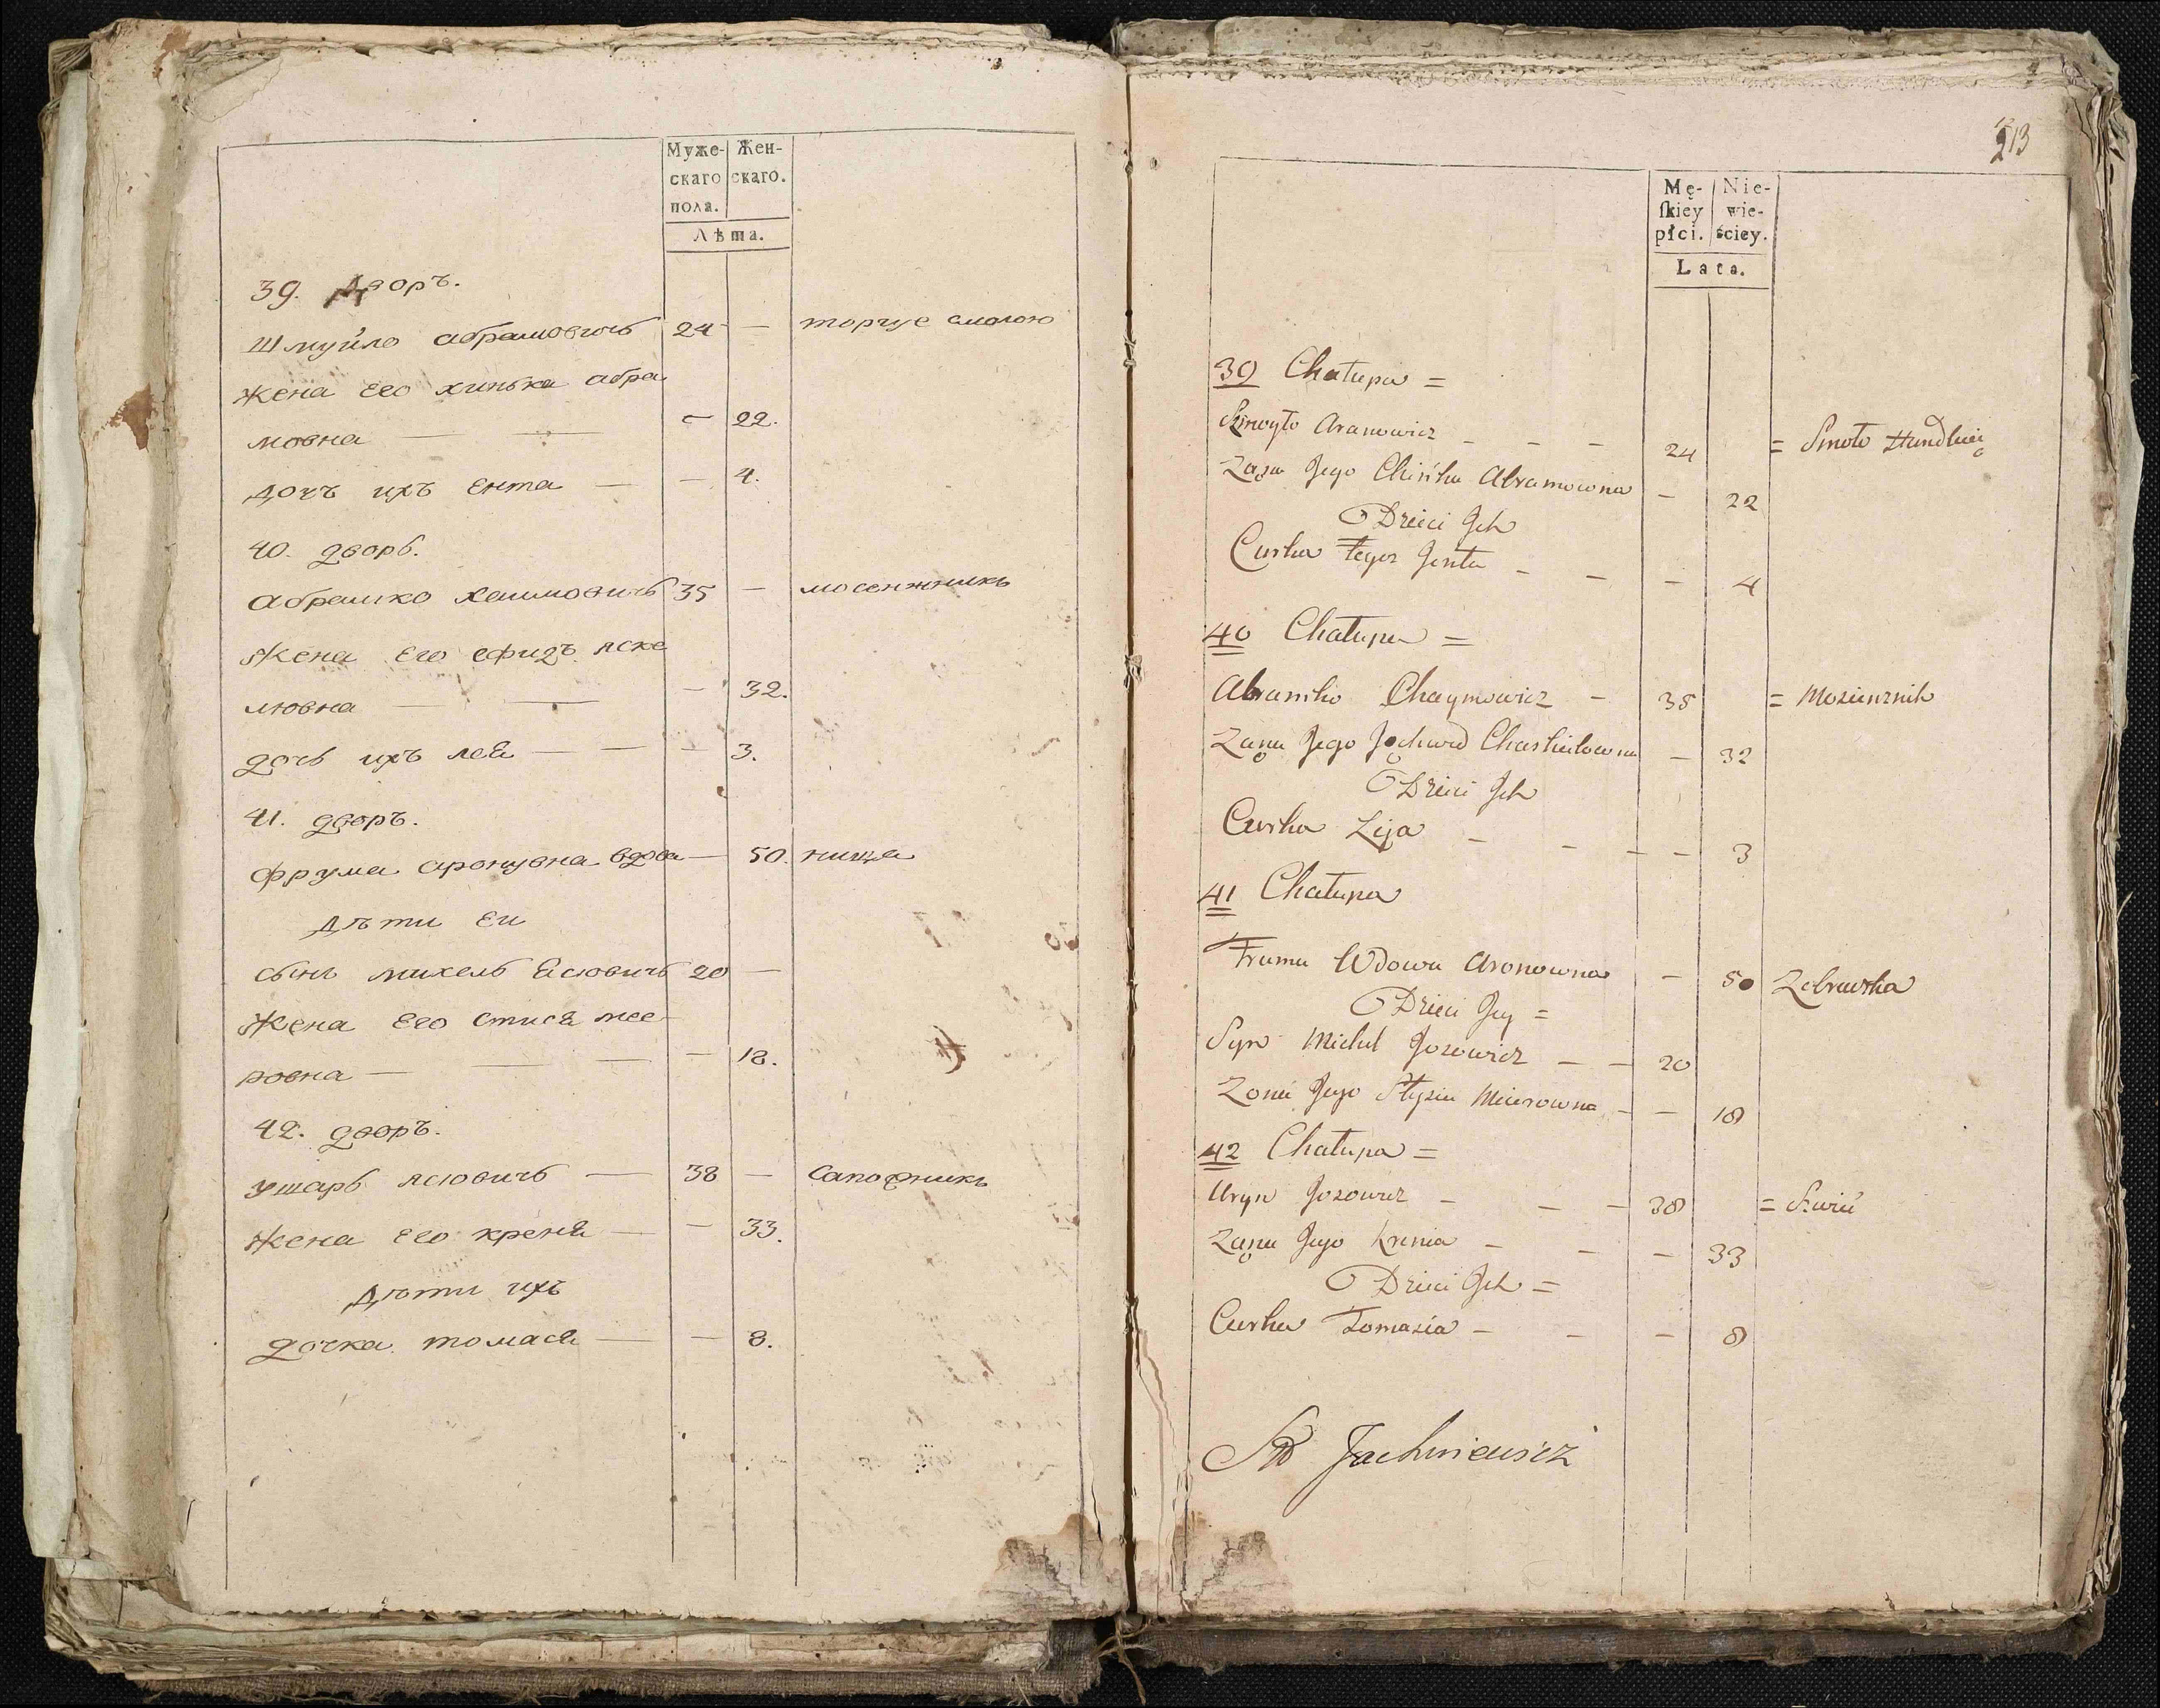 Муже- Жен-
скаго скаго.
пола.
Лѣта.
39. дворъ.
Шмуйло абрамовичь 24 — торгуе смолою
жена его хинька абра
мовна — — — 22.
дочъ ихъ ента — — 4.
40. дворъ.
абрамко хаимовичь 35 — мосенжникъ
жена его ефидъ хаске
люовна — — — 32.
дочь ихъ лея — — — 3.
41. дворъ.
фрума аронувна вдова — 50. нища
дѣти еи
сынъ михель 20 —
жена его стися мее
ровна — — — 18.
42. дворъ.
38 — сапожникъ
жена его креня — — 33.
дѣти ихъ
дочка томася — — 8.
213
Mę- Nie-
ſkiey wie-
płci. ściey.
Lata.
39 Chałupa =
Szmuyło - - - 24 = Smołą Handluie
Żona Jego Chińka Abramowna - 22
Dzieci Jch
Curka Jenta - - - 4
40 Chałupa =
Abramko Chaymowicz - 35 = Mosienznik
Żona Jego Jochwed Chaskielowna - 32
Dzieci Jch
Curka Leja - - - - 3
41 Chałupa
Fruma Wdowa Aronowna - 50 Zebraczka
Dzieci Jey =
Syn Michel Josowicz - - 20
Zona Jego Stysia Mierowna - - 18
42 Chałupa =
Josowicz - - - 38 = Szwiec
Żona Jego Krenia - - - 33
Dzieci Jch =
Curka Tomasia - - - 8
Jachniewicz